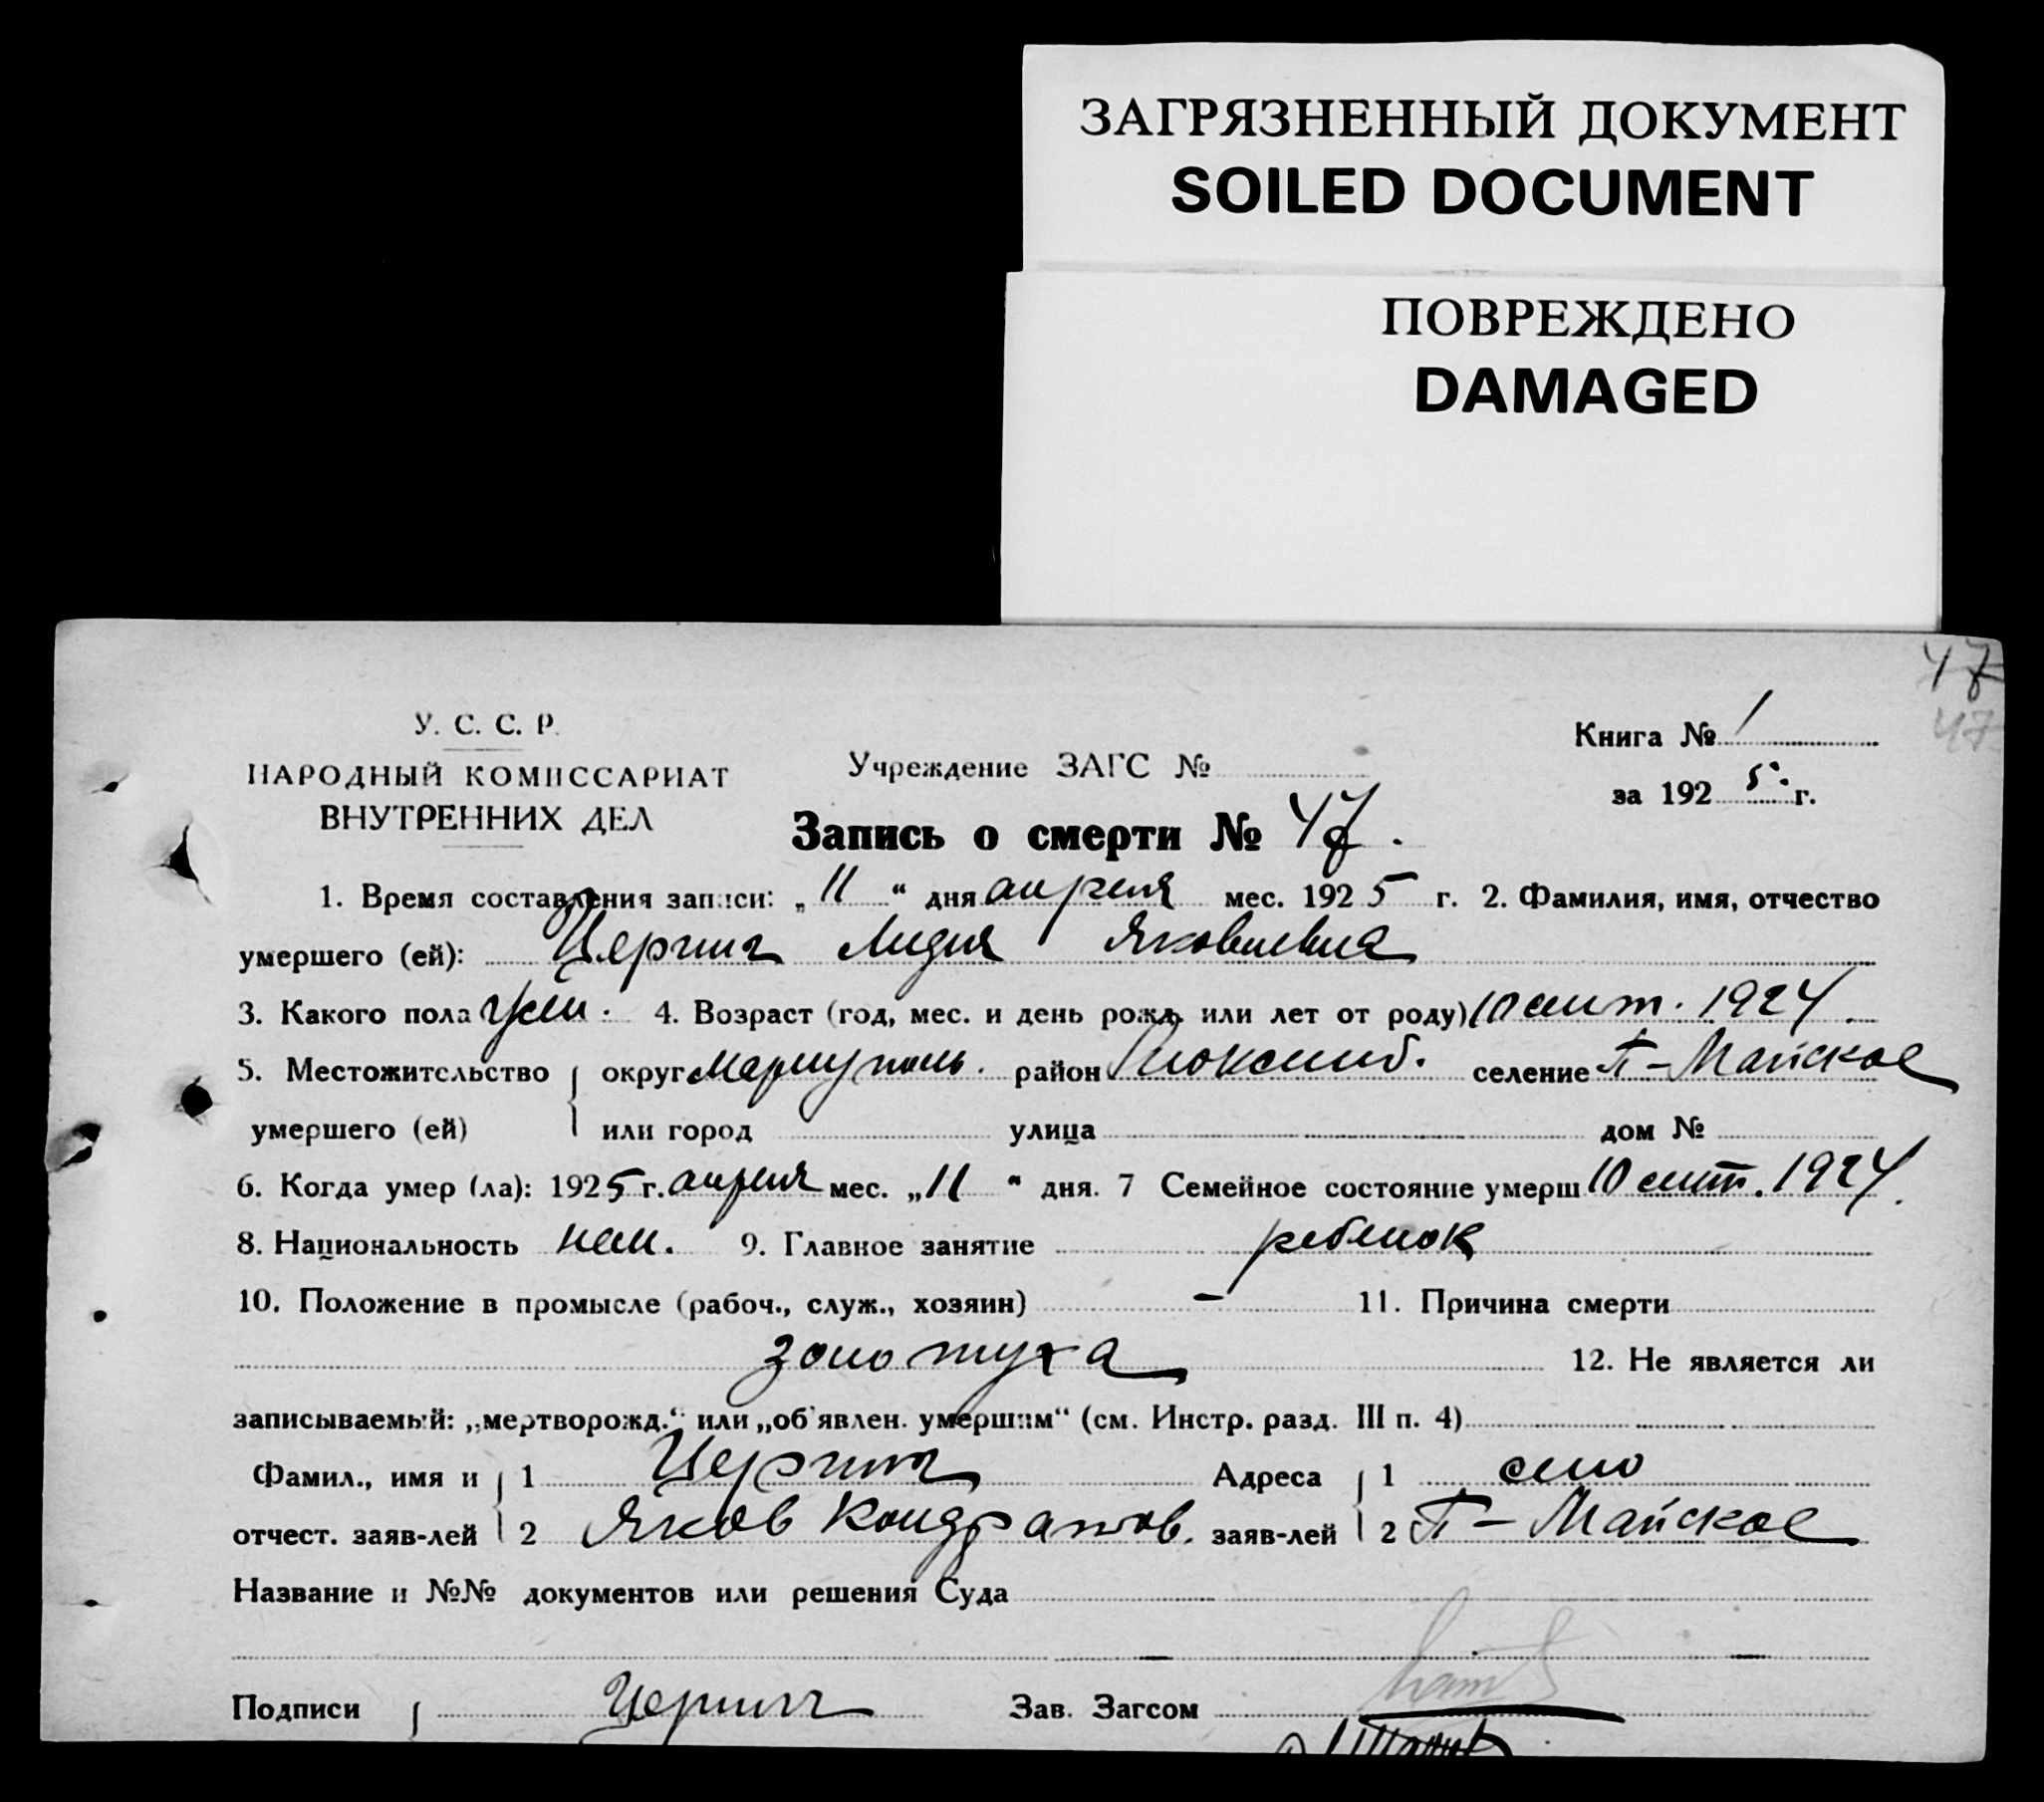 ЗАГРЯЗНЕННЫЙ ДОКУМЕНТ
SOILED DOCUMENT
ПОВРЕЖДЕНО
DAMAGED
47
47
У. С. С. Р.
НАРОДНЫЙ КОМИССАРИАТ
ВНУТРЕННИХ ДЕЛ
Учреждение ЗАГС №
Книга № 1
за 1925 г.
Запись о смерти № 47.
1. Время составления записи: „11“ дня апреля мес. 1925 г. 2. Фамилия, имя, отчество
умершего (ей): Цернинг Лидия Яковлевна
3. Какого пола жен. 4. Возраст (год, мес. и день рожд. или лет от роду) 10 сент. 1924.
5. Местожительство округ Мариуполь. район селение П-Майское
умершего (ей) или город улица дом №
6. Когда умер (ла): 1925 г. апреля мес. „11“ дня. 7 Семейное состояние умерш 10 сент. 1924.
8. Национальность нем. 9. Главное занятие ребенок
10. Положение в промысле (рабоч., служ., хозяин) – 11. Причина смерти
золотуха 12. Не является ли
записываемый: „мертворожд.“ или „об'явлен. умершим“ (см. Инстр. разд. III п. 4)
Фамил., имя и 1 Адреса 1 село
отчест. заяв-лей 2 Яков Кондратов. заяв-лей 2 П-Майское
Название и №№ документов или решения Суда
Подписи Зав. Загсом